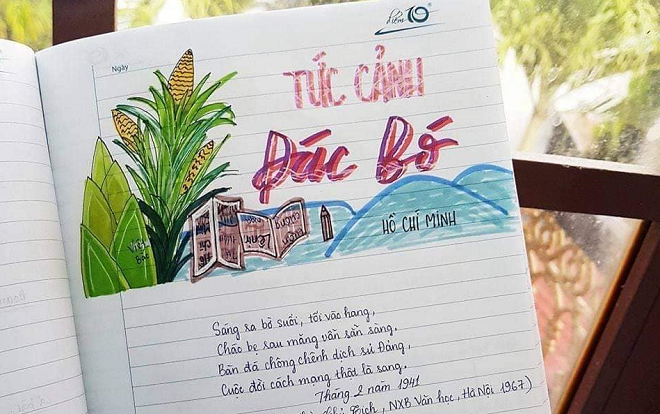 điểm 10
Ngày
TỨC CẢNH
Pác Bó
HỒ CHÍ MINH
Việt Bắc
Lênin
Sáng ra bờ suối, tối vào hang,
Cháo bẹ rau măng vẫn sẵn sàng,
Bàn đá chông chênh dịch sử Đảng,
Cuộc đời cách mạng thật là sang.
Tháng 2 năm 1941
Tịch, NXB Văn học, Hà Nội 1967)